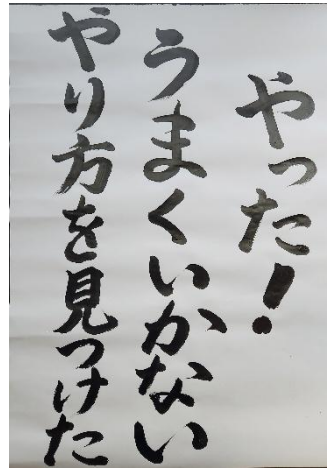 やった！
うまくいかない
やり方を見つけた